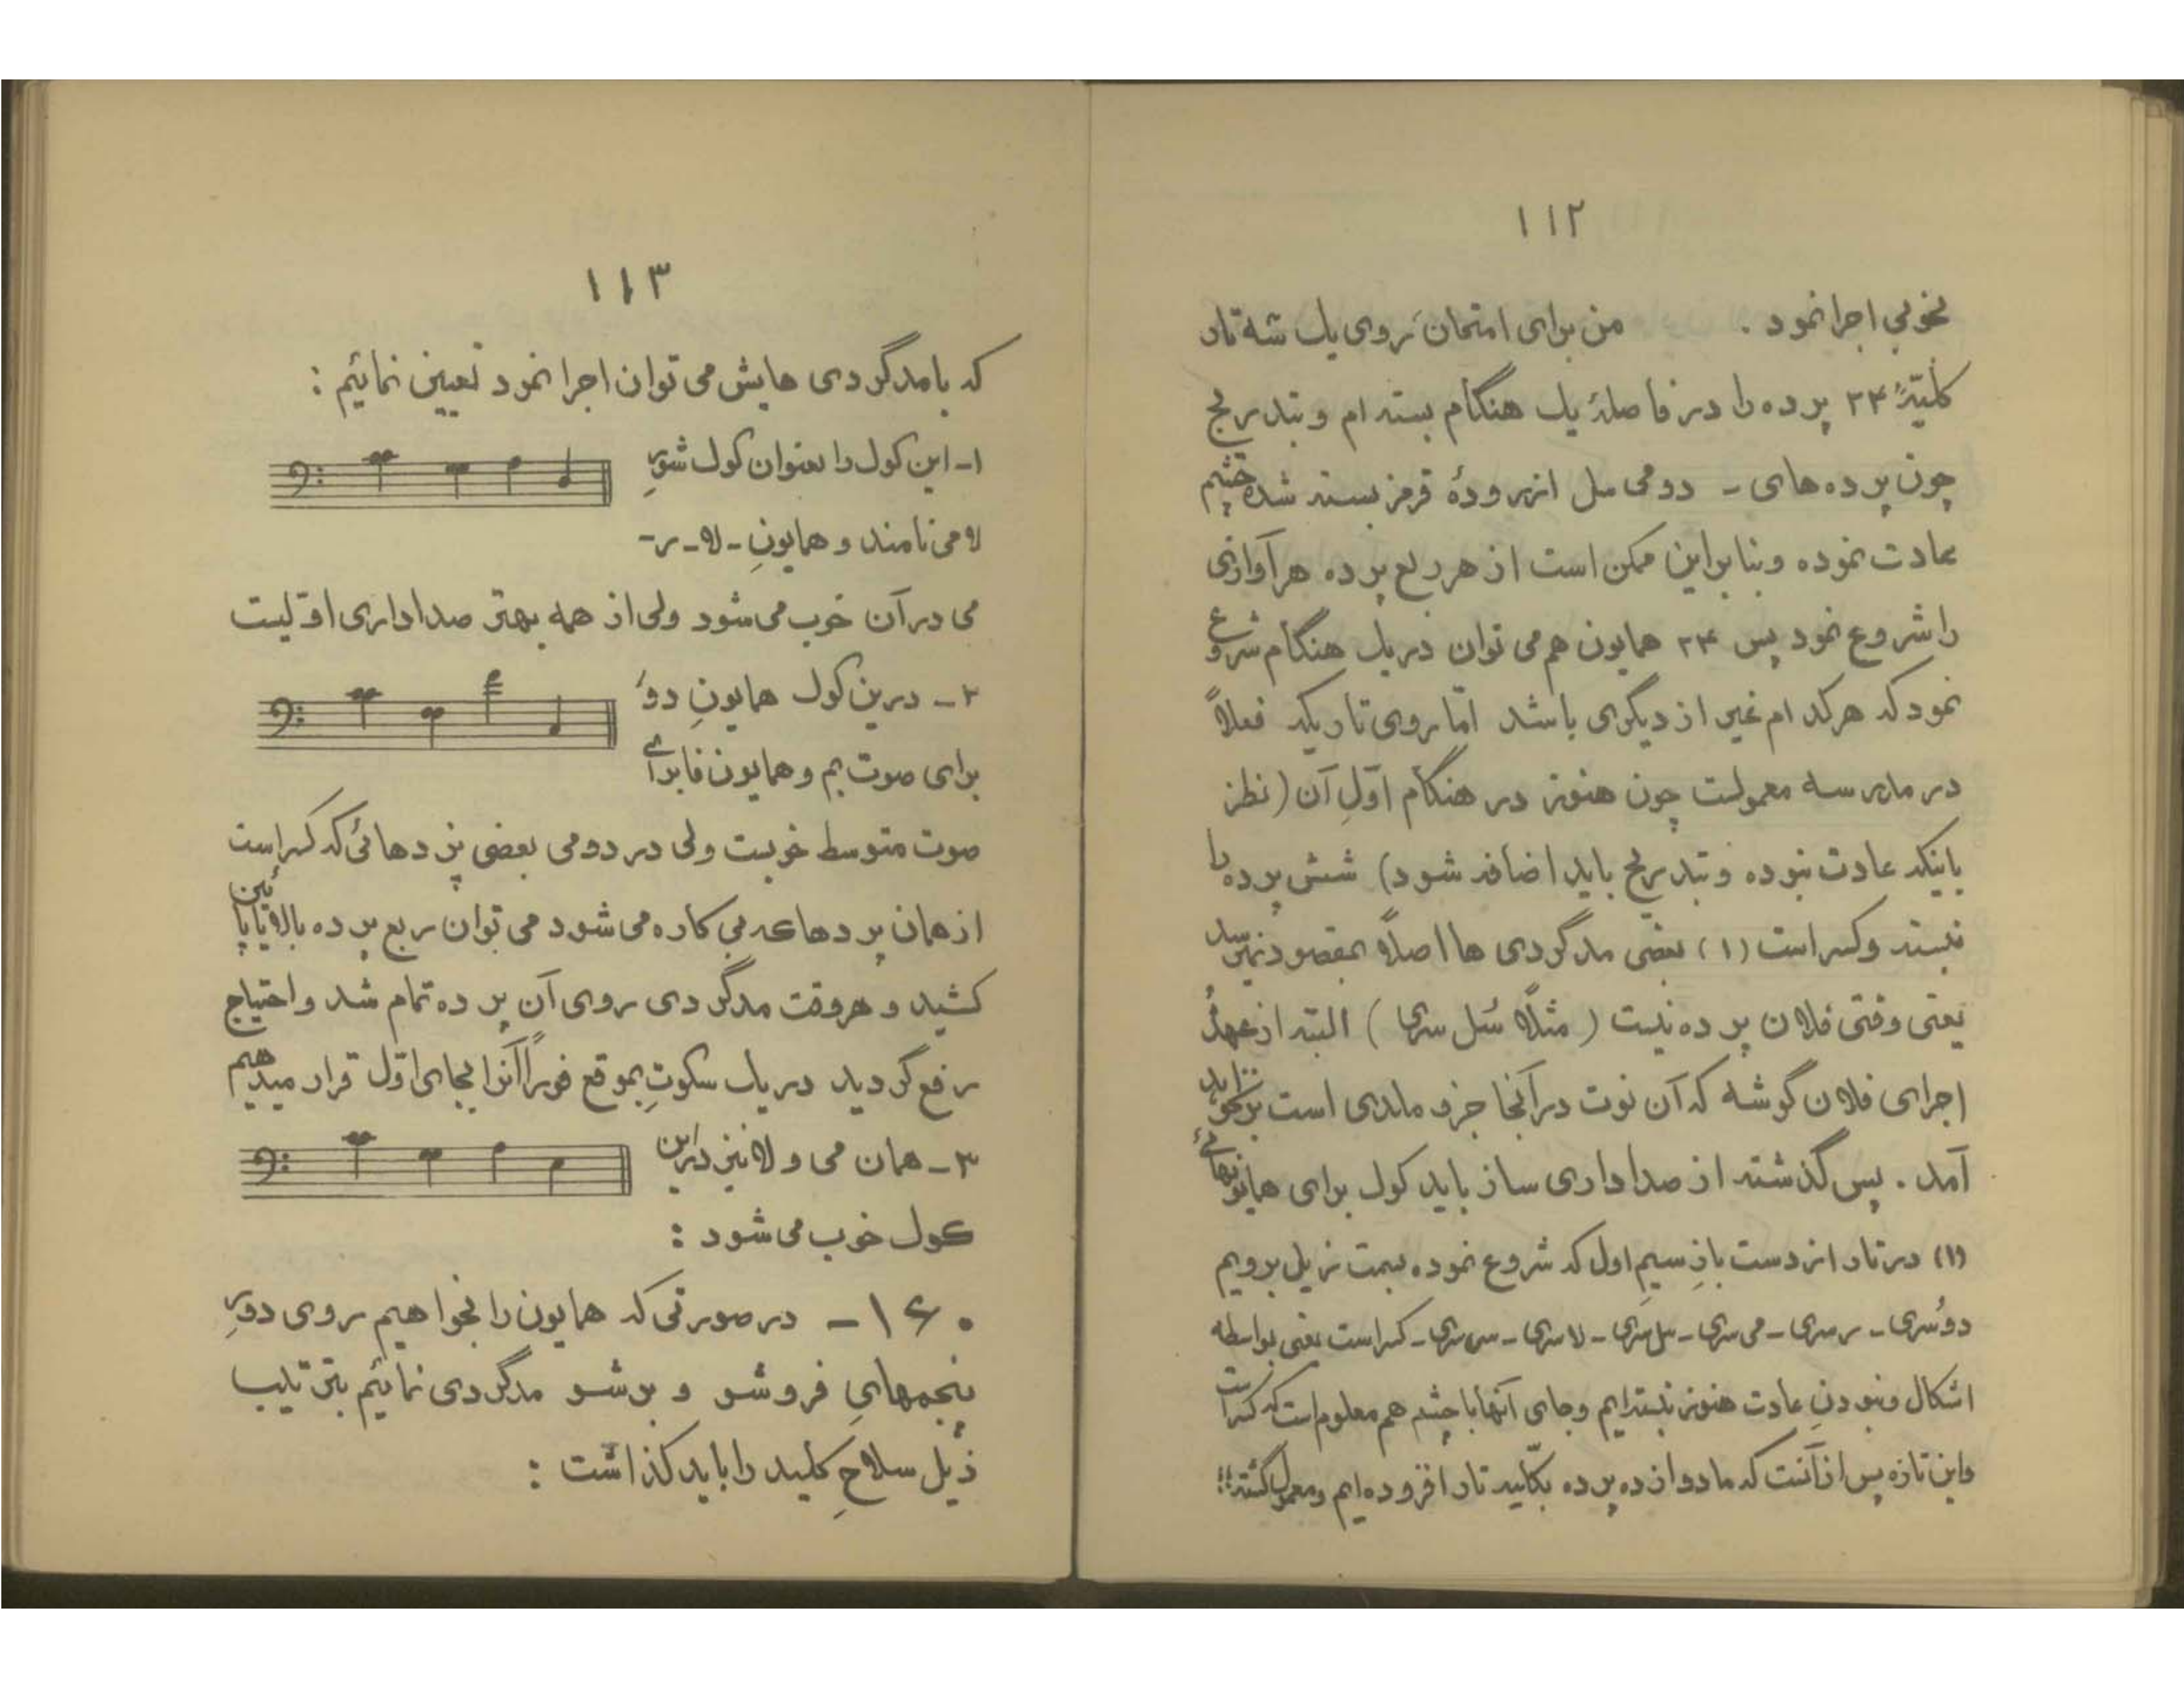 ۱۱۲
بخوبی اجرا نمود . من برای امتحان، روی یک شه تار
کلیّهٔ ۲۴ پرده را در فاصلهٔ یک هنگام بسته ام و بتدریج
چون پرده های - دو می سل از روده قرمز بسته شده چشم
عادت نموده و بنابراین ممکن است از هر ربع پرده هر آوازی
را شروع نمود پس ۲۴ همایون هم می توان در یک هنگام شروع
نمود که هر کدام غیر از دیگری باشد امّا روی تاریکه فعلاً
در مدرسه معمولست چون هنوز در هنگام اوّلِ آن (نظر
باینکه عادت نبوده و بتدریج باید اضافه شود) شش پرده را
نبسته و کسر است (۱) بعضی مدگردی ها اصلاً بمقصود نمیرسد
یعنی وقتی فلان پرده نیست ( مثلاً سُل سری ) البته از عهدهٔ
اجرای فلان گوشه که آن نوت در آنجا جزو ملدی است بر نخواهد
آمد . پس گذشته از صداداری ساز باید کول برای همایونهائی
(۱) در تار از دست بازِ سیم اول که شروع نموده بسمت زیل برویم
دو سُری - ر سری - می سری - سل سری - لا سری - سی سری - کسر است یعنی بواسطه
اشکال و نبودنِ عادت هنوز نبسته ایم و جای آنها با چشم هم معلوم است که کسر است
و این تازه پس از آنست که ما دو ازده پرده بکلّیه تار افزوده ایم و معمول گشته!!
۱۱۳
که با مدگردی هایش می توان اجرا نمود تعیین نمائیم :
۱- این کول را بعنوان کول شورِ
لا می نامند و همایونِ - لا - ر -
می در آن خوب می شود ولی از همه بهتر صداداری اوّلیست
۲ - درین کول همایونِ دو
برای صوت بم و همایون فا برای
صوت متوسط خوبست ولی در دومی بعضی پردهائی که کسر است
از همان پردهاء بی کاره می شود می توان ربع پرده بالا یا پائین
کشید و هر وقت مدگردی روی آن پرده تمام شد و احتیاج
رفع گردید در یک سکوتِ بموقع فوراً آنرا بجای اوّل قرار میدهیم
۳ - همان می و لا نیز در این
کول خوب می شود :
۱۶۰ - در صورتی که همایون را بخواهیم روی دورِ
پنجمهایِ فروشو و برشو مدگردی نمائیم بترتیب
ذیل سلاحِ کلید را باید گذاشت :